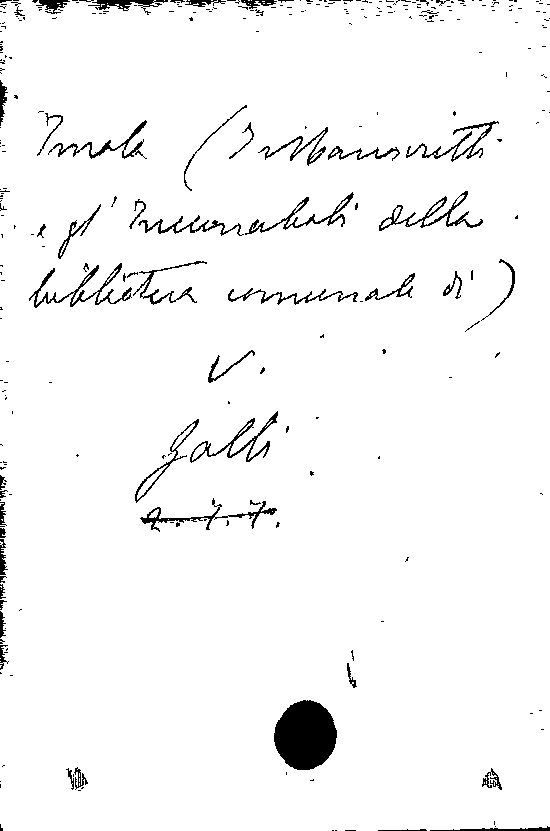 Imola (I Manoscritti
e gl' Incunaboli della
biblioteca comunale di)
V.
Galli
2. 7. 7.